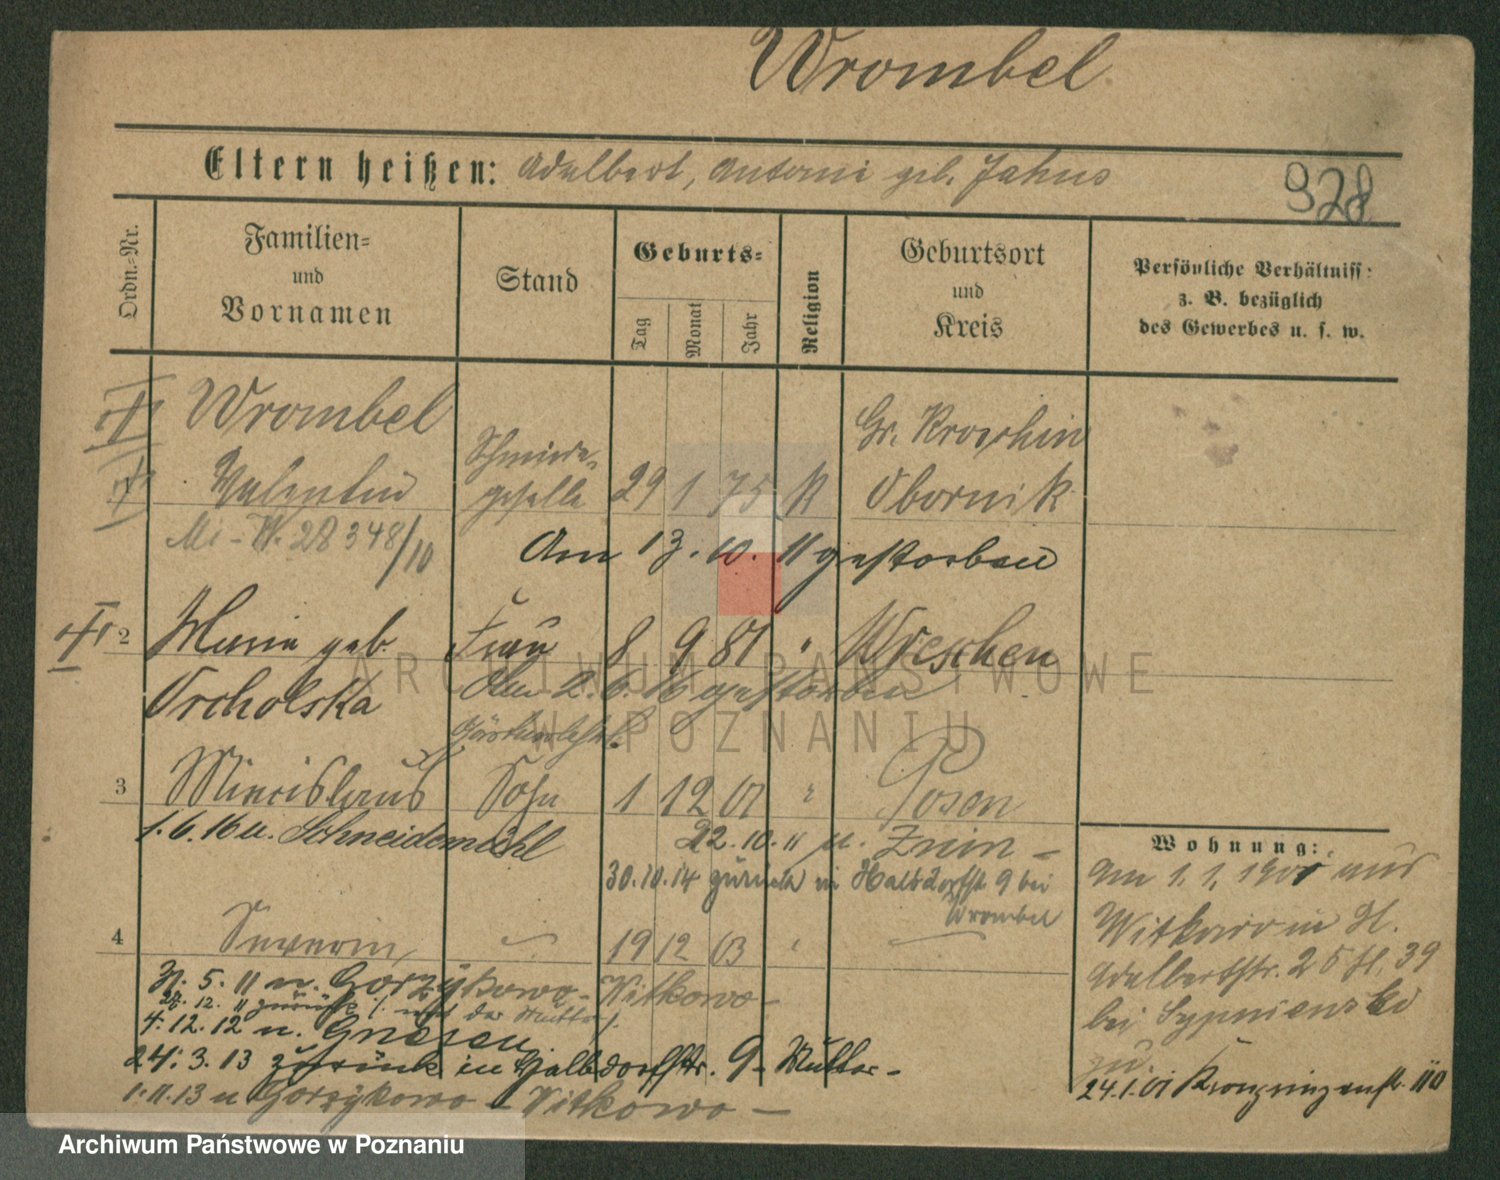 Wrombel
Eltern heißen: Adalbert, Antonie geb. Jahns
928
Ordn.-Nr.
Familien-
und
Vornamen
Stand
Geburts-
Tag
Monat
Jahr
Religion
Geburtsort
und
Kreis
Persönliche Verhältniss:
z. B. bezüglich
des Gewerbes u. s. w.
Wrombel
Valentin
Schmiede-
geselle
29 1 75 K
Gr. Kroschin
Obornik
Mi-W. 28348/10
Am 13. 10. 11 gestorben
2 Maria geb. Frau 8 9 81 " Wreschen
Orcholska
Am 2. 6. 16 gestorben
3 Miecislaus Sohn 1 12 01 " Posen
1. 6. 16 n. Schneidemühl
22. 10. 11 n. Znin -
30. 10. 14 zurück in Halbdorfstr 9 bei
Wrombel
4 Severin 19 12 03 "
5. 11 n. Gorzykowo - Witkowo -
27. 12. 11 zurück /. mit der Mutter /.
4. 12. 12 n. Gnesen
24. 3. 13 zurück in Halbdorfstr. 9 - Mutter -
1. 11. 13 n Gorzykowo - Witkowo -
Wohnung:
Am 1. 1. 1901 aus
Witkowo in H.
Adalbertstr. 25 H. 39
bei
zu.
24. 1. 01 Kronprinzenstr. 110
ARCHIWUM PAŃSTWOWE
W POZNANIU
Archiwum Państwowe w Poznaniu